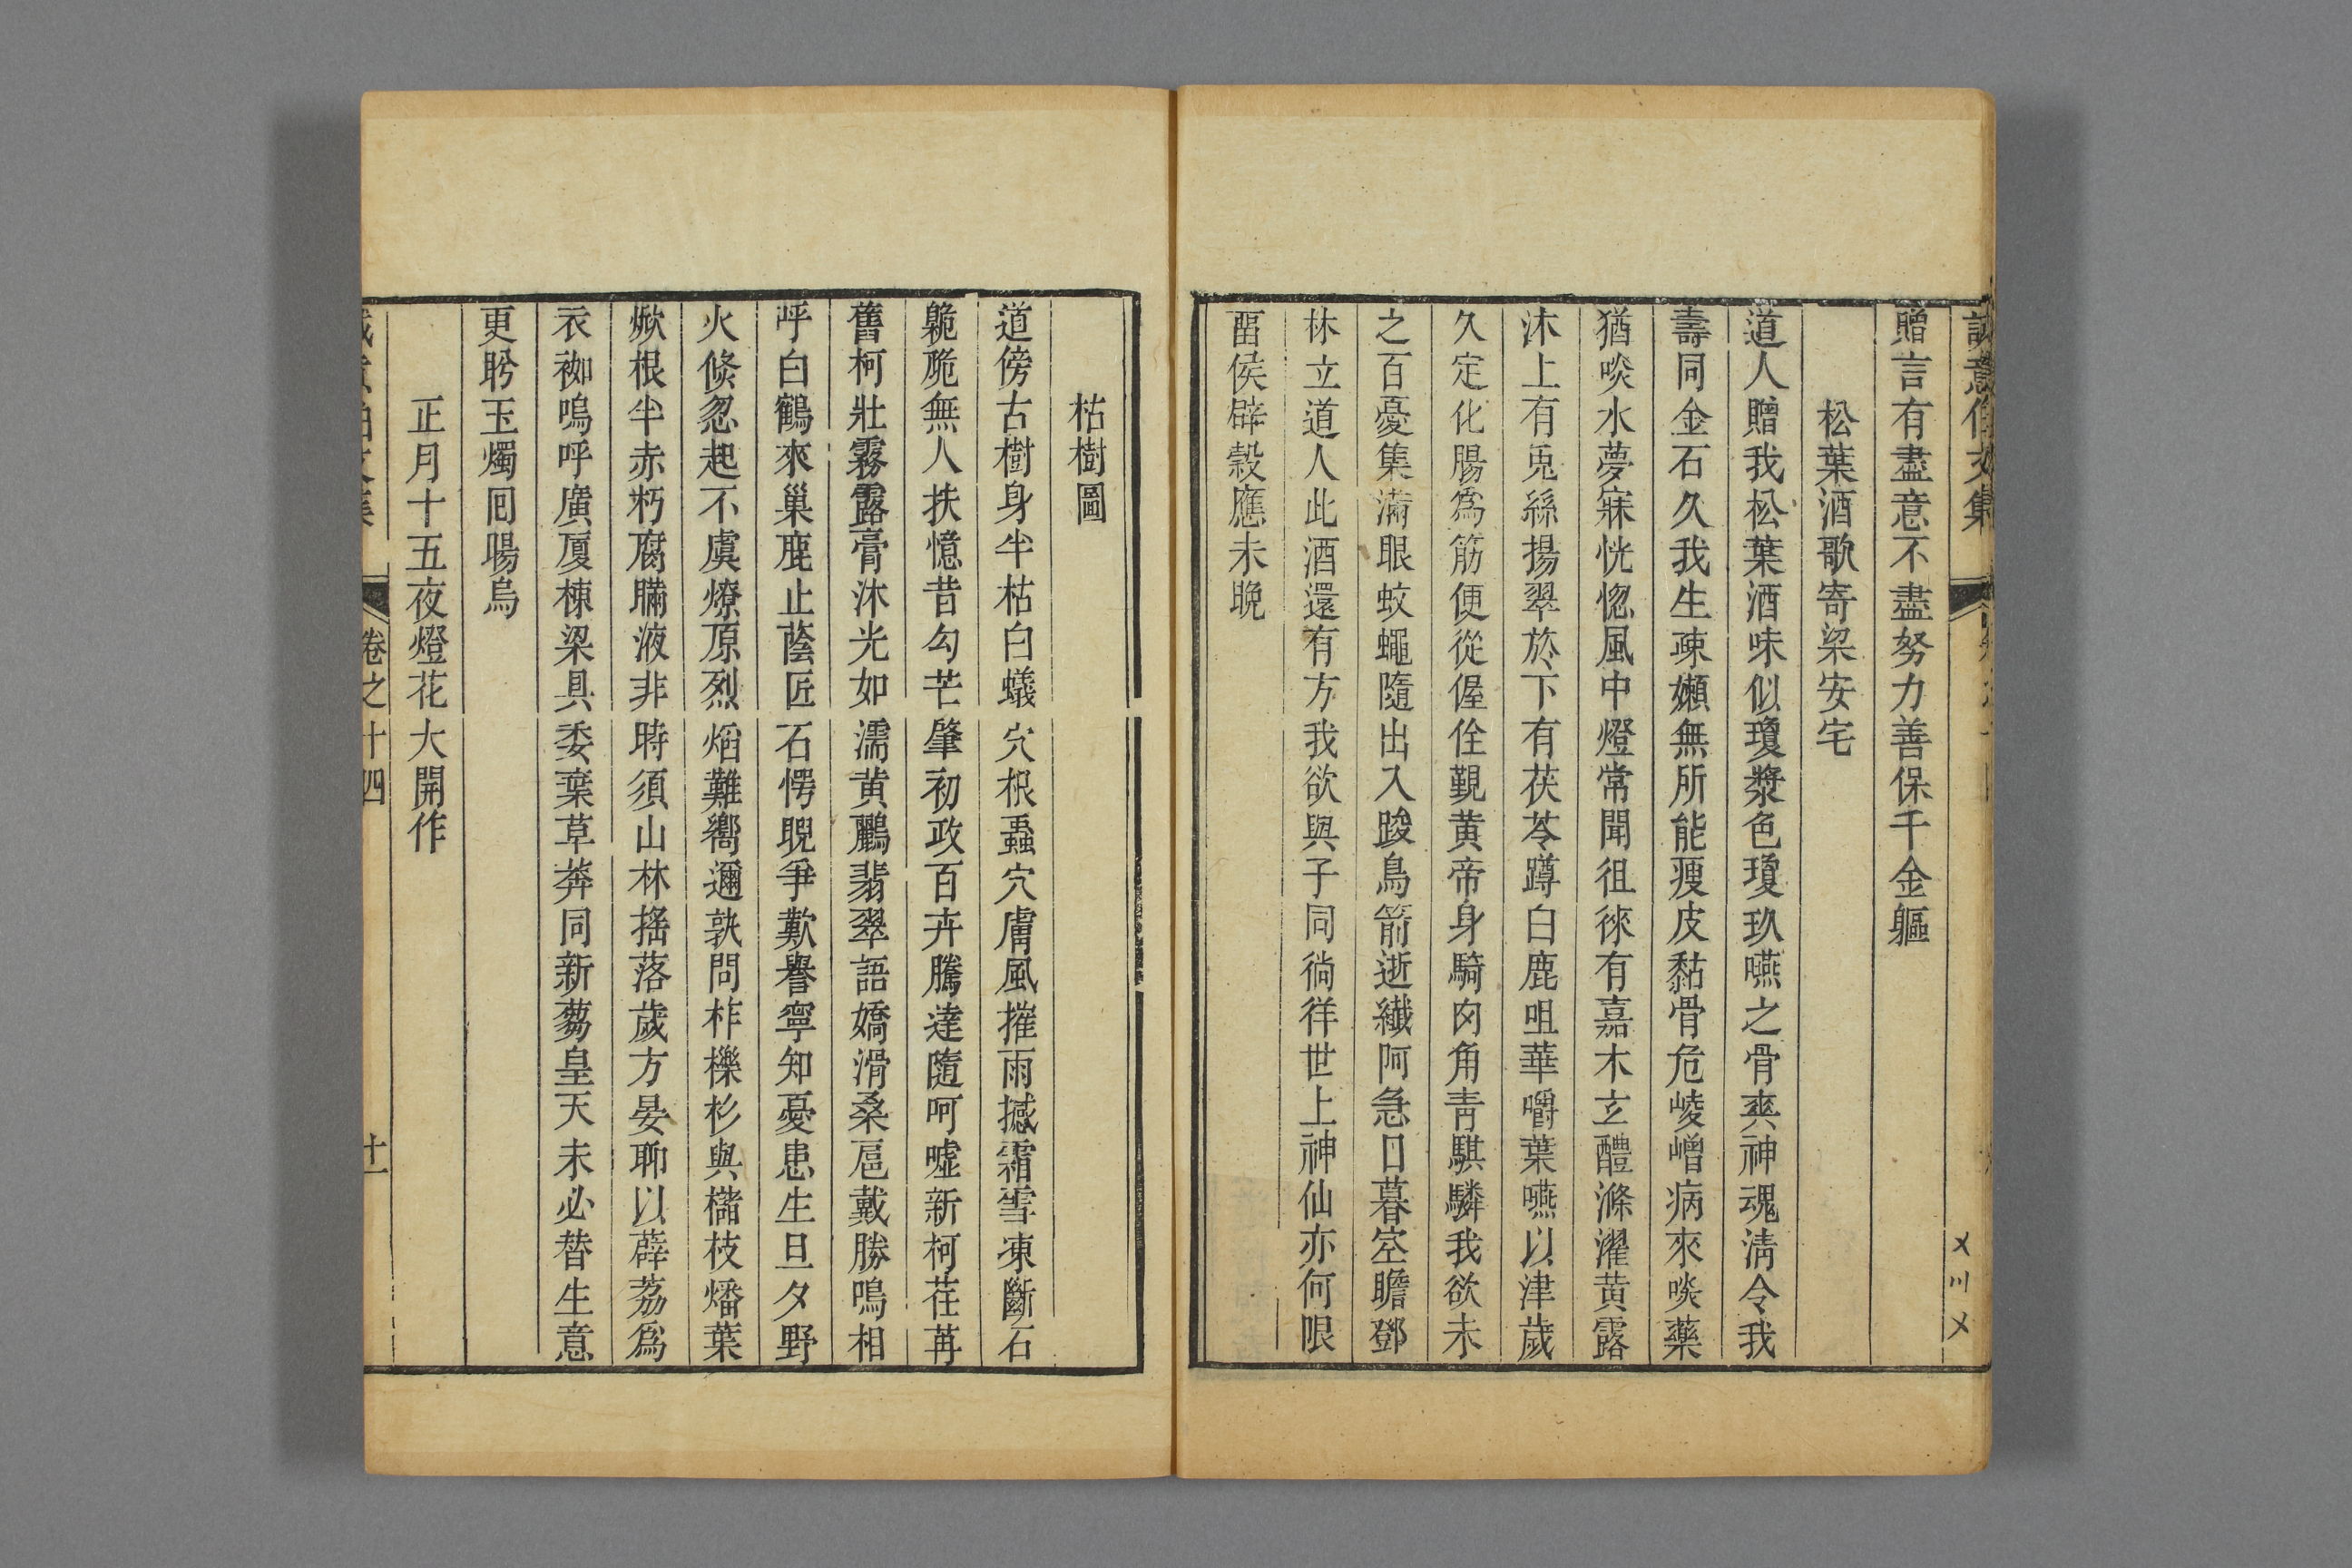 贈言有盡意不盡努力善保千金軀
松葉酒歌寄梁安宅
道人贈我松葉酒味似瓊漿色瓊玖嚥之骨爽神魂淸令我
壽同金石久我生疎嬾無所能瘦皮黏骨危崚嶒病來啖藥
猶啖水夢寐恍惚風中燈常聞徂徠有嘉木玄醴滌濯黄露
沐上有兎絲揚翠旍下有茯苓蹲白鹿咀華嚼葉嚥以津歲
久定化腸爲筋便從偓佺覲黄帝身騎肉角靑騏驎我欲未
之百憂集滿眼蚊蠅隨出入踆鳥箭逝纎阿急日暮空瞻鄧
林立道人此酒還有方我欲與子同徜徉世上神仙亦何限
畱侯辟穀應未晚
枯樹圖
道傍古樹身半枯白蟻穴根蟲穴膚風摧雨撼霜雪凍斷石
臲卼無人扶憶昔勾芒肇初政百卉騰達隨呵噓新柯荏苒
舊柯壯霧露膏沐光如濡黄鸝翡翠語嬌滑桑扈戴勝鳴相
呼白鶴來巢鹿止蔭匠石愕睨爭歎譽寧知憂患生旦夕野
火倏忽起不虞燎原烈焰難嚮邇孰問柞櫟杉與櫧枝燔葉
焮根半赤朽腐𦢊液非時須山林搖落歲方晏聊以薜荔爲
衣袽嗚呼廣厦棟梁具委棄草莽同新蒭皇天未必替生意
更盻玉燭囘暘烏
正月十五夜燈花大開作
卷之十四
十一